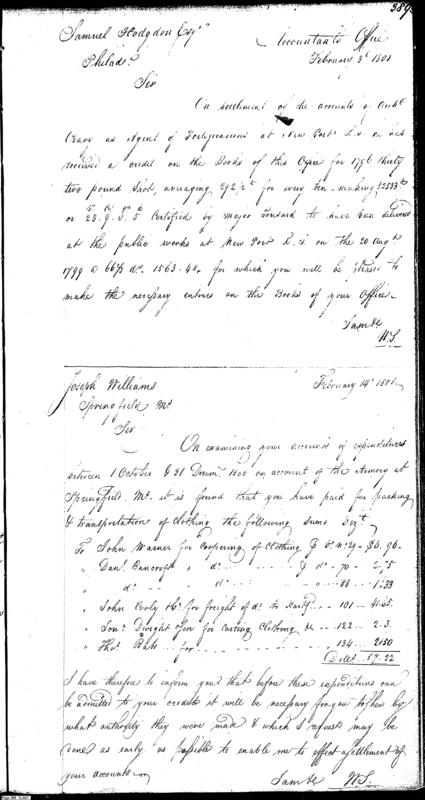 389
Samuel Hodgdon Esqr
Accountants Office
Philada
February 3d 1801
Sir
On settlement of the accounts of Archd
Crary as Agent of Fortifications at New Port R.I. he has
received a credit on the Books of this Office for 1796 thirty
two pound Shot, averaging 292 for every ten - making
or 23. 9. 3. 5 Certified by Major Tousard to have been delivered
at the public works at New Port R.I. on the 20 Augt
1799 @ 66⅔ dr. 1563.42, for which you will be pleased to
make the necessary entries on the Books of your Office -
Same
W.S.
Joseph Williams
February 14th 1801
Springfield Ms.
Sir
On examining your accounts of expenditures
between 1 October & 31 Decemr 1800 on account of the Armory at
Springfield Ms. it is found that you have paid for packing
& transportation of clothing the following sums Vizt
To John Warner for Coopering of Clothing no 29 - $6.96 -
" Danl Bancroft " do - - - & do - 70 - 2.75
" do - - do - - - " - 88 - 1.33
" John Cooly for freight of do to Hartfd - - 101 - 41.65
" Jona Dwight for Carting Clothing &c - - 122 - 2.3
" Thos Bates - for - - - 134 - 2.50
Dolls. 57.22
I have therefore to inform you that before these expenditures can
be admitted to your credit it will be necessary for you to shew by
what authority they were made & which I request may be
done as early as possible to enable me to effect a settlement of
your accounts -
Same W.S.